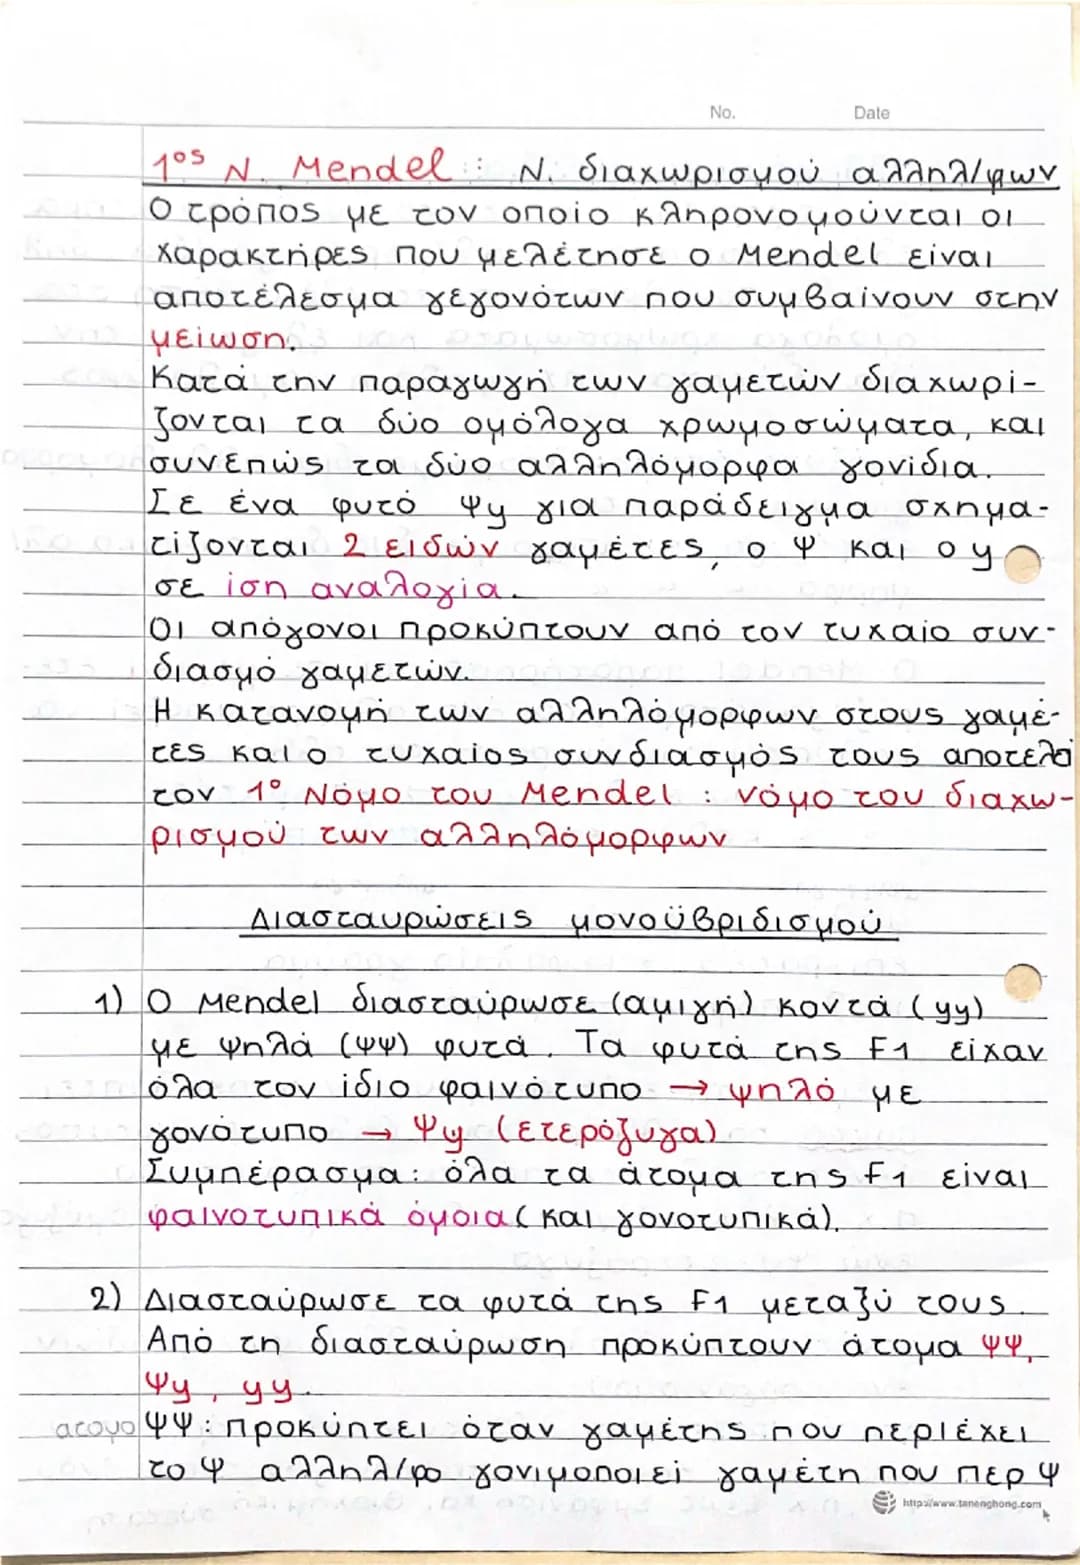 No. Date
1ος Ν. Mendel : Ν. διαχωρισμού αλληλ/φων
Ο τρόπος με τον οποίο κληρονομούνται οι
χαρακτήρες που μελέτησε ο Mendel είναι
αποτέλεσμα γεγονότων που συμβαίνουν στην
μείωση.
Κατά την παραγωγή των γαμετών διαχωρί-
ζονται τα δύο ομόλογα χρωμοσώματα, και
συνεπώς τα δύο αλληλόμορφα γονίδια.
Σε ένα φυτό Ψψ για παράδειγμα σχημα-
τίζονται 2 ειδών γαμέτες, ο Ψ και ο ψ
σε ίση αναλογία.
Οι απόγονοι προκύπτουν από τον τυχαίο συν-
διασμό γαμετών.
Η κατανομή των αλληλόμορφων στους γαμέ-
τες και ο τυχαίος συνδιασμός τους αποτελεί
τον 1° Νόμο του Mendel : νόμο του διαχω-
ρισμού των αλληλόμορφων
Διασταυρώσεις μονοϋβριδισμού
1) Ο Mendel διασταύρωσε (αμιγή) κοντά (ψψ)
με ψηλά (ΨΨ) φυτά. Τα φυτά της F1 είχαν
όλα τον ίδιο φαινότυπο → ψηλό με
γονότυπο → Ψψ (ετερόζυγα)
Συμπέρασμα: όλα τα άτομα της F1 είναι
φαινοτυπικά όμοια (και γονοτυπικά).
2) Διασταύρωσε τα φυτά της F1 μεταξύ τους.
Από τη διασταύρωση προκύπτουν άτομα ΨΨ,
Ψψ, ψψ.
ατομο ΨΨ: προκύπτει όταν γαμέτης που περιέχει
το Ψ αλληλ/φο γονιμοποιεί γαμέτη που περ Ψ
http://www.tanenghong.com